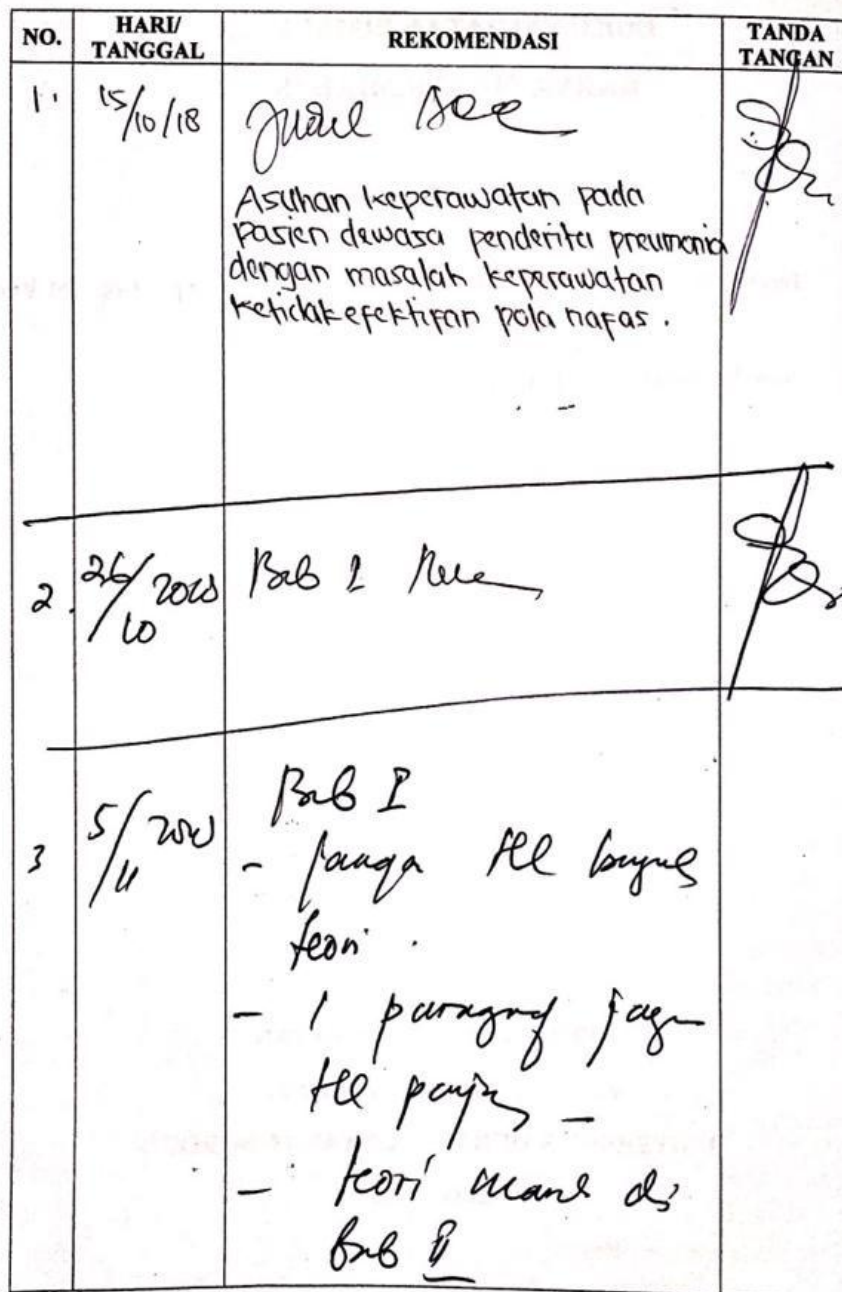 NO. HARI/ TANGGAL REKOMENDASI TANDA TANGAN
1. 15/10/18 Judul Acc
Asuhan keperawatan pada
pasien dewasa penderita pneumonia
dengan masalah keperawatan
ketidakefektifan pola nafas.
2. 26/10 2018 Bab 1
3 5/11 2018 Bab I
- jangan tll banyak
teori.
- 1 paragraf jangan
tll panjang
- teori masuk di
Bab II